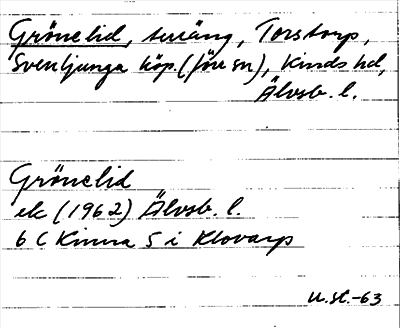 Grönelid, terräng, Torstorp,
Svenljunga köp. (förr sn), Kinds hd,
Älvsb. l.
Grönelid
ek (1962) Älvsb. l.
6 C Kinna 5 i Klovarp
U.St.-63